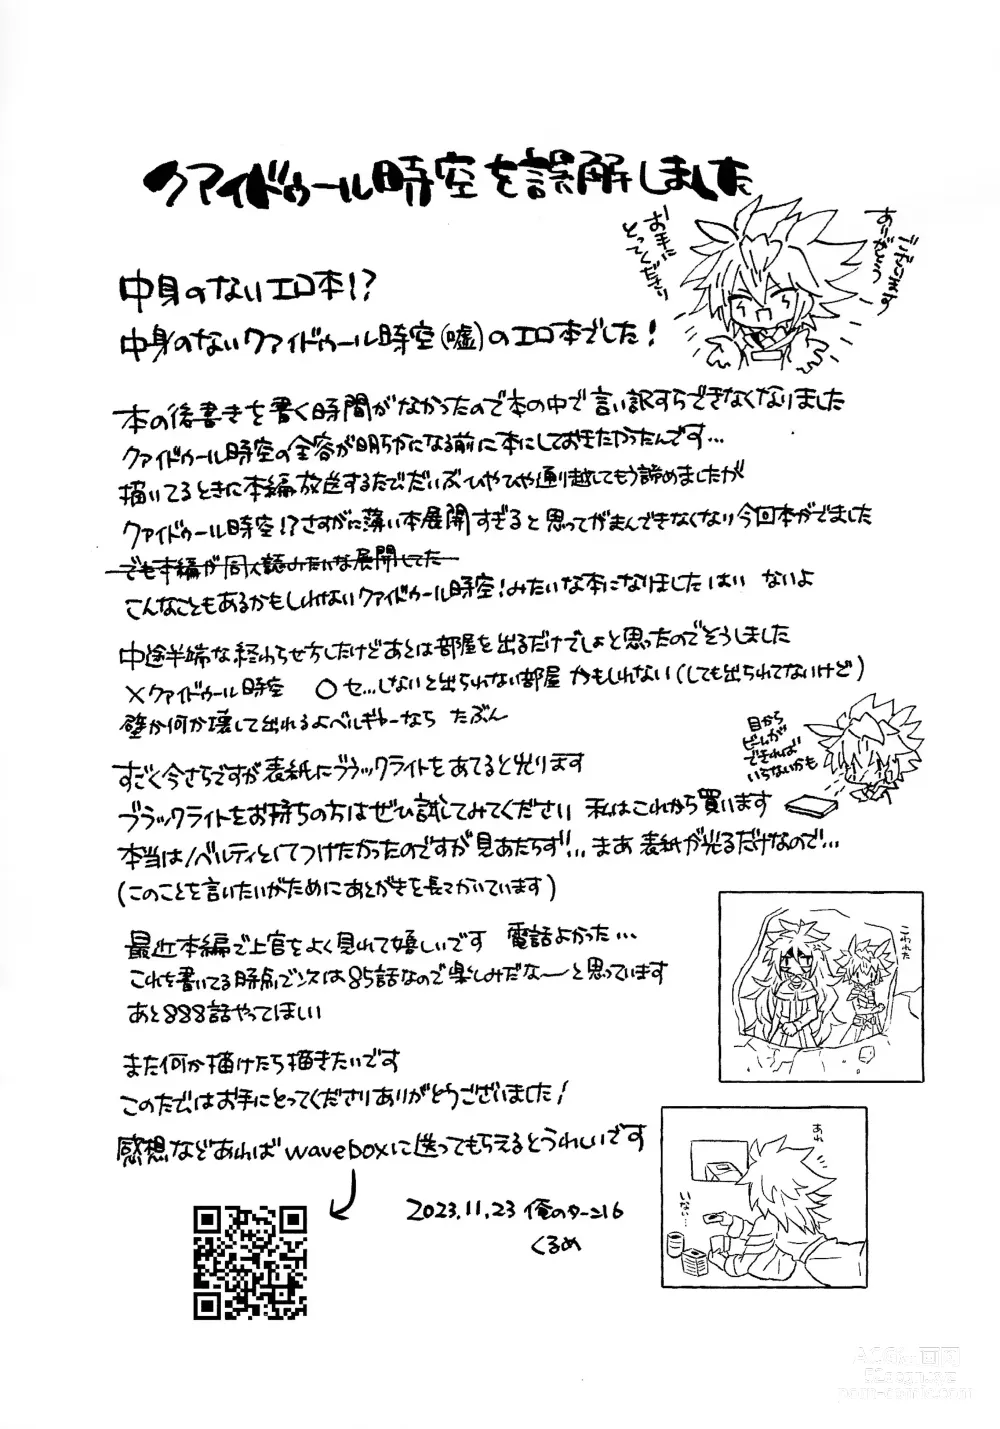 クァイドゥール時空を誤解しました
お手に
とってくださり
ありがとう
ございます
中身のないエロ本!?
中身のないクァイドゥール時空(嘘)のエロ本でした!
本の後書きを書く時間がなかったので本の中で言い訳すらできなくなりました
クァイドゥール時空の全容が明らかになる前に本にしておきたかったんです…
描いてるときに本編放送するたびだいぶひやひや通り越してもう諦めましたが
クァイドゥール時空!?さすがに薄い本展開すぎると思ってがまんできなくなり今回本がでました
でも本編が同人誌みたいな展開してた
こんなこともあるかもしれないクァイドゥール時空!みたいな本になりました はい ないよ
中途半端な終わらせ方したけどあとは部屋を出るだけでしょと思ったのでそうしました
×クァイドゥール時空 ○セ…しないと出られない部屋 かもしれない(しても出られてないけど)
壁か何か壊して出れるよベルギャーなら たぶん
目から
ビームが
できれば
いらないかも
すごく今さらですが表紙にブラックライトをあてると光ります
ブラックライトをお持ちの方はぜひ試してみてください 私はこれから買います
本当はノベルティとしてつけたかったのですが見あたらず…まあ表紙が光るだけなので…
(このことを言いたいがためにあとがきを長々かいています)
最近本編で上官をよく見れて嬉しいです 電話よかった…
これを書いてる時点でンスは85話なので楽しみだな〜と思っています
あと888話やってほしい
こわれた
また何か描けたら描きたいです
このたびはお手にとってくださりありがとうございました!
感想などあればwaveboxに送ってもらえるとうれしいです
あれ
いない…
2023.11.23 俺のターン16
くるめ